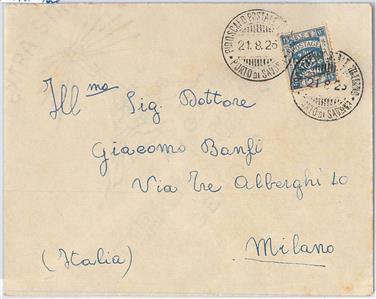 PIROSCAFO POSTALE
21.8.26
PORTO DI
POSTAGE
21 8 26
PORTO DI
Ill.mo Sig. Dottore
Giacomo Banfi
Via Tre Alberghi 10
Milano
(Italia)